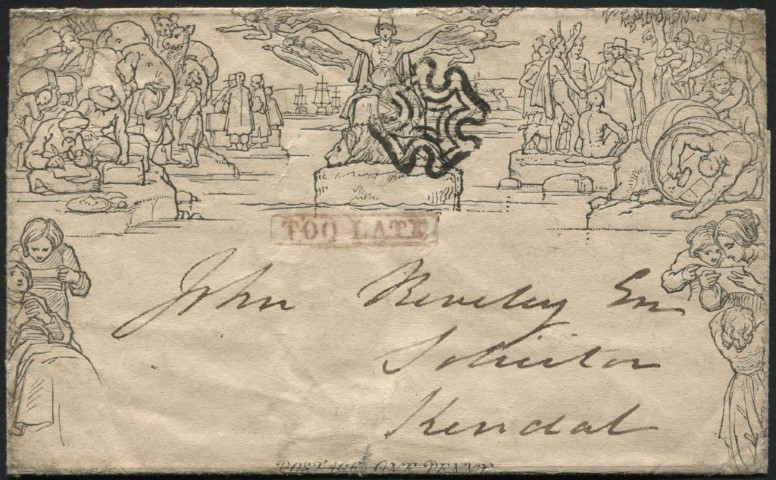 TOO LATE
John Reveley Esq
Solicitor
Kendal
POSTAGE ONE PENNY